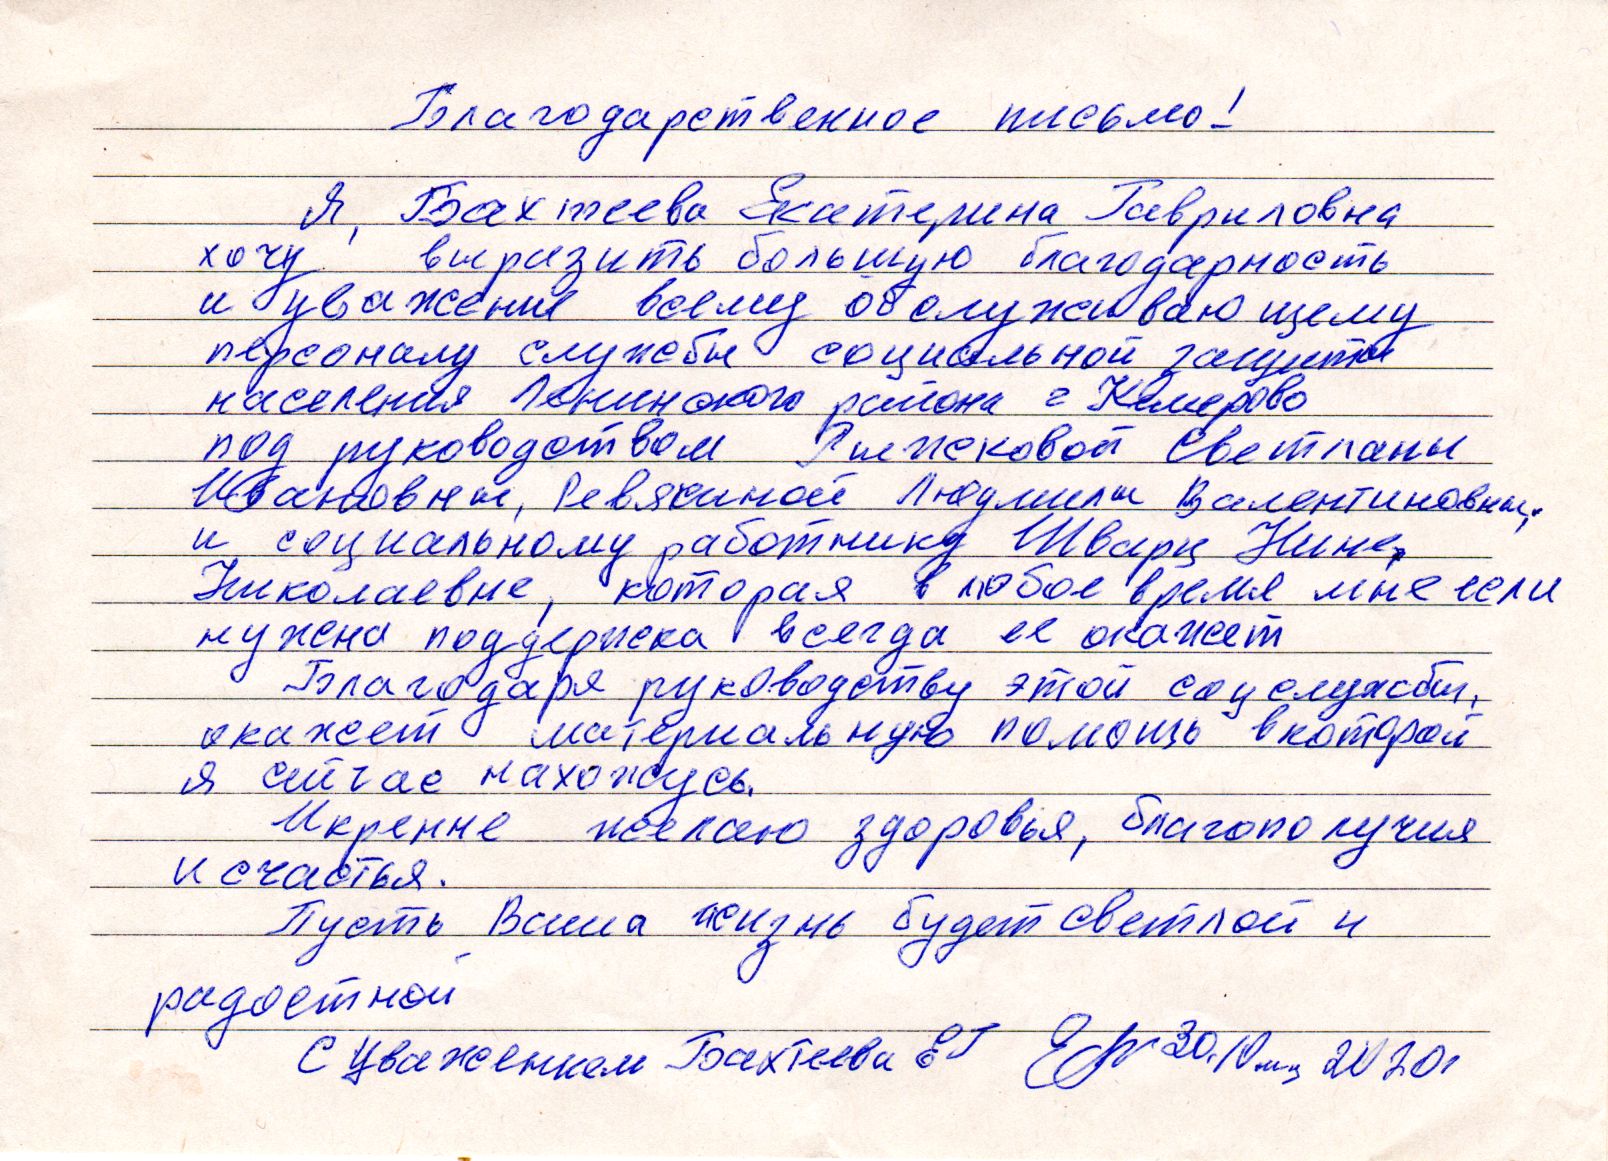 Благодарственное письмо!
Я, Бахтеева Екатерина Гавриловна
хочу выразить большую благодарность
и уважение всему обслуживающему
персоналу службы социальной защиты
населения Ленинского района г Кемерово
под руководством Рыжковой Светланы
Ивановны, Ревякиной Людмилы Валентиновны,
и социальному работнику Шварц Нине,
Николаевне, которая в любое время мне если
нужна поддержка всегда ее окажет
Благодаря руководству этой соцслужбы,
окажет материальную помощь в которой
я сейчас нахожусь.
Икренне желаю здоровья, благополучия
и счастья.
Пусть Ваша жизнь будет светлой и
радостной
С Уваженнем Бахтеева ЕГ 30.10 2020г